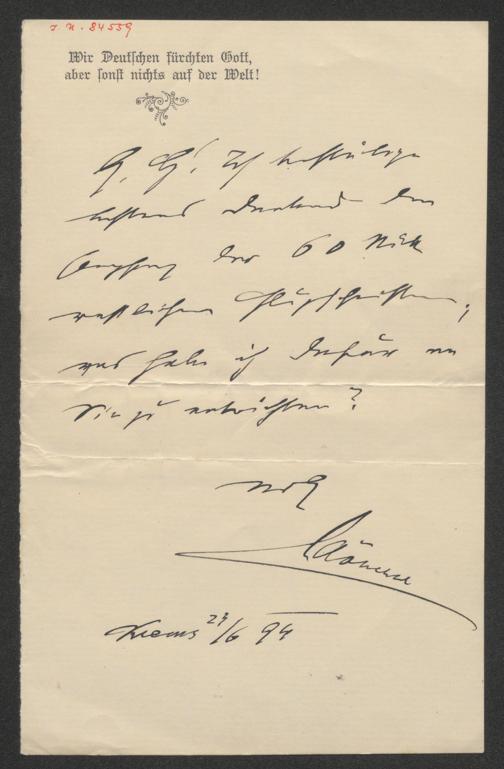 I. N. 84559
Wir Deutschen fürchten Gott,
aber sonst nichts auf der Welt!
G. G! Ich bestätige
bestens dankend den
Empfang der 60 Stück
Flugschriften;
was habe ich dafür an
Sie zu entrichten?
Krems 29/6 94